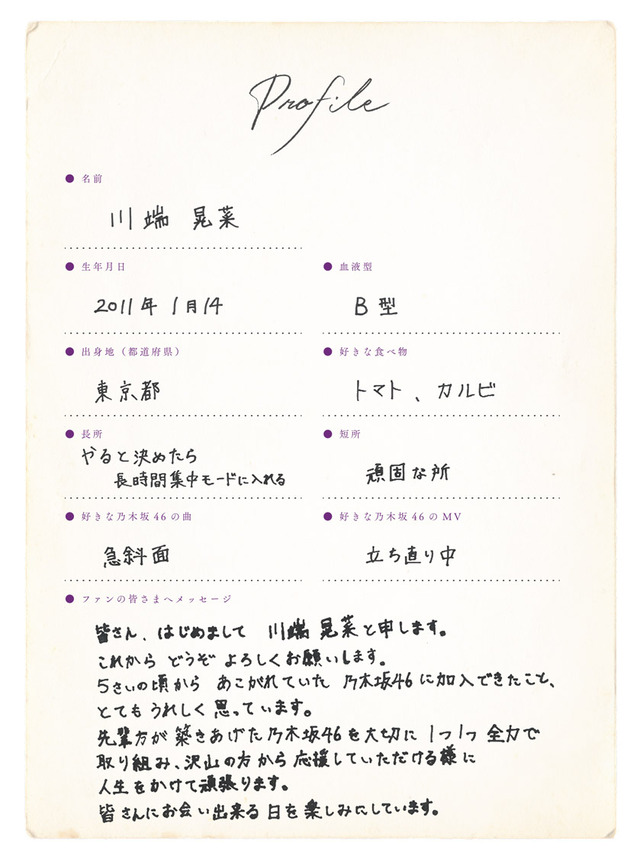 Profile
名前
川端 晃菜
生年月日
2011年 1月14
血液型
B型
出身地（都道府県）
東京都
好きな食べ物
トマト、カルビ
長所
やると決めたら
長時間集中モードに入れる
短所
頑固な所
好きな乃木坂46の曲
急斜面
好きな乃木坂46のMV
立ち直り中
ファンの皆さまへメッセージ
皆さん、はじめまして 川端 晃菜と申します。
これから どうぞ よろしくお願いします。
5さいの頃から あこがれていた 乃木坂46に加入できたこと、
とても うれしく 思っています。
先輩方が 築きあげた乃木坂46を大切に 1つ1つ 全力で
取り組み、沢山の方から応援していただける様に
人生をかけて頑張ります。
皆さんにお会い出来る日を楽しみにしています。